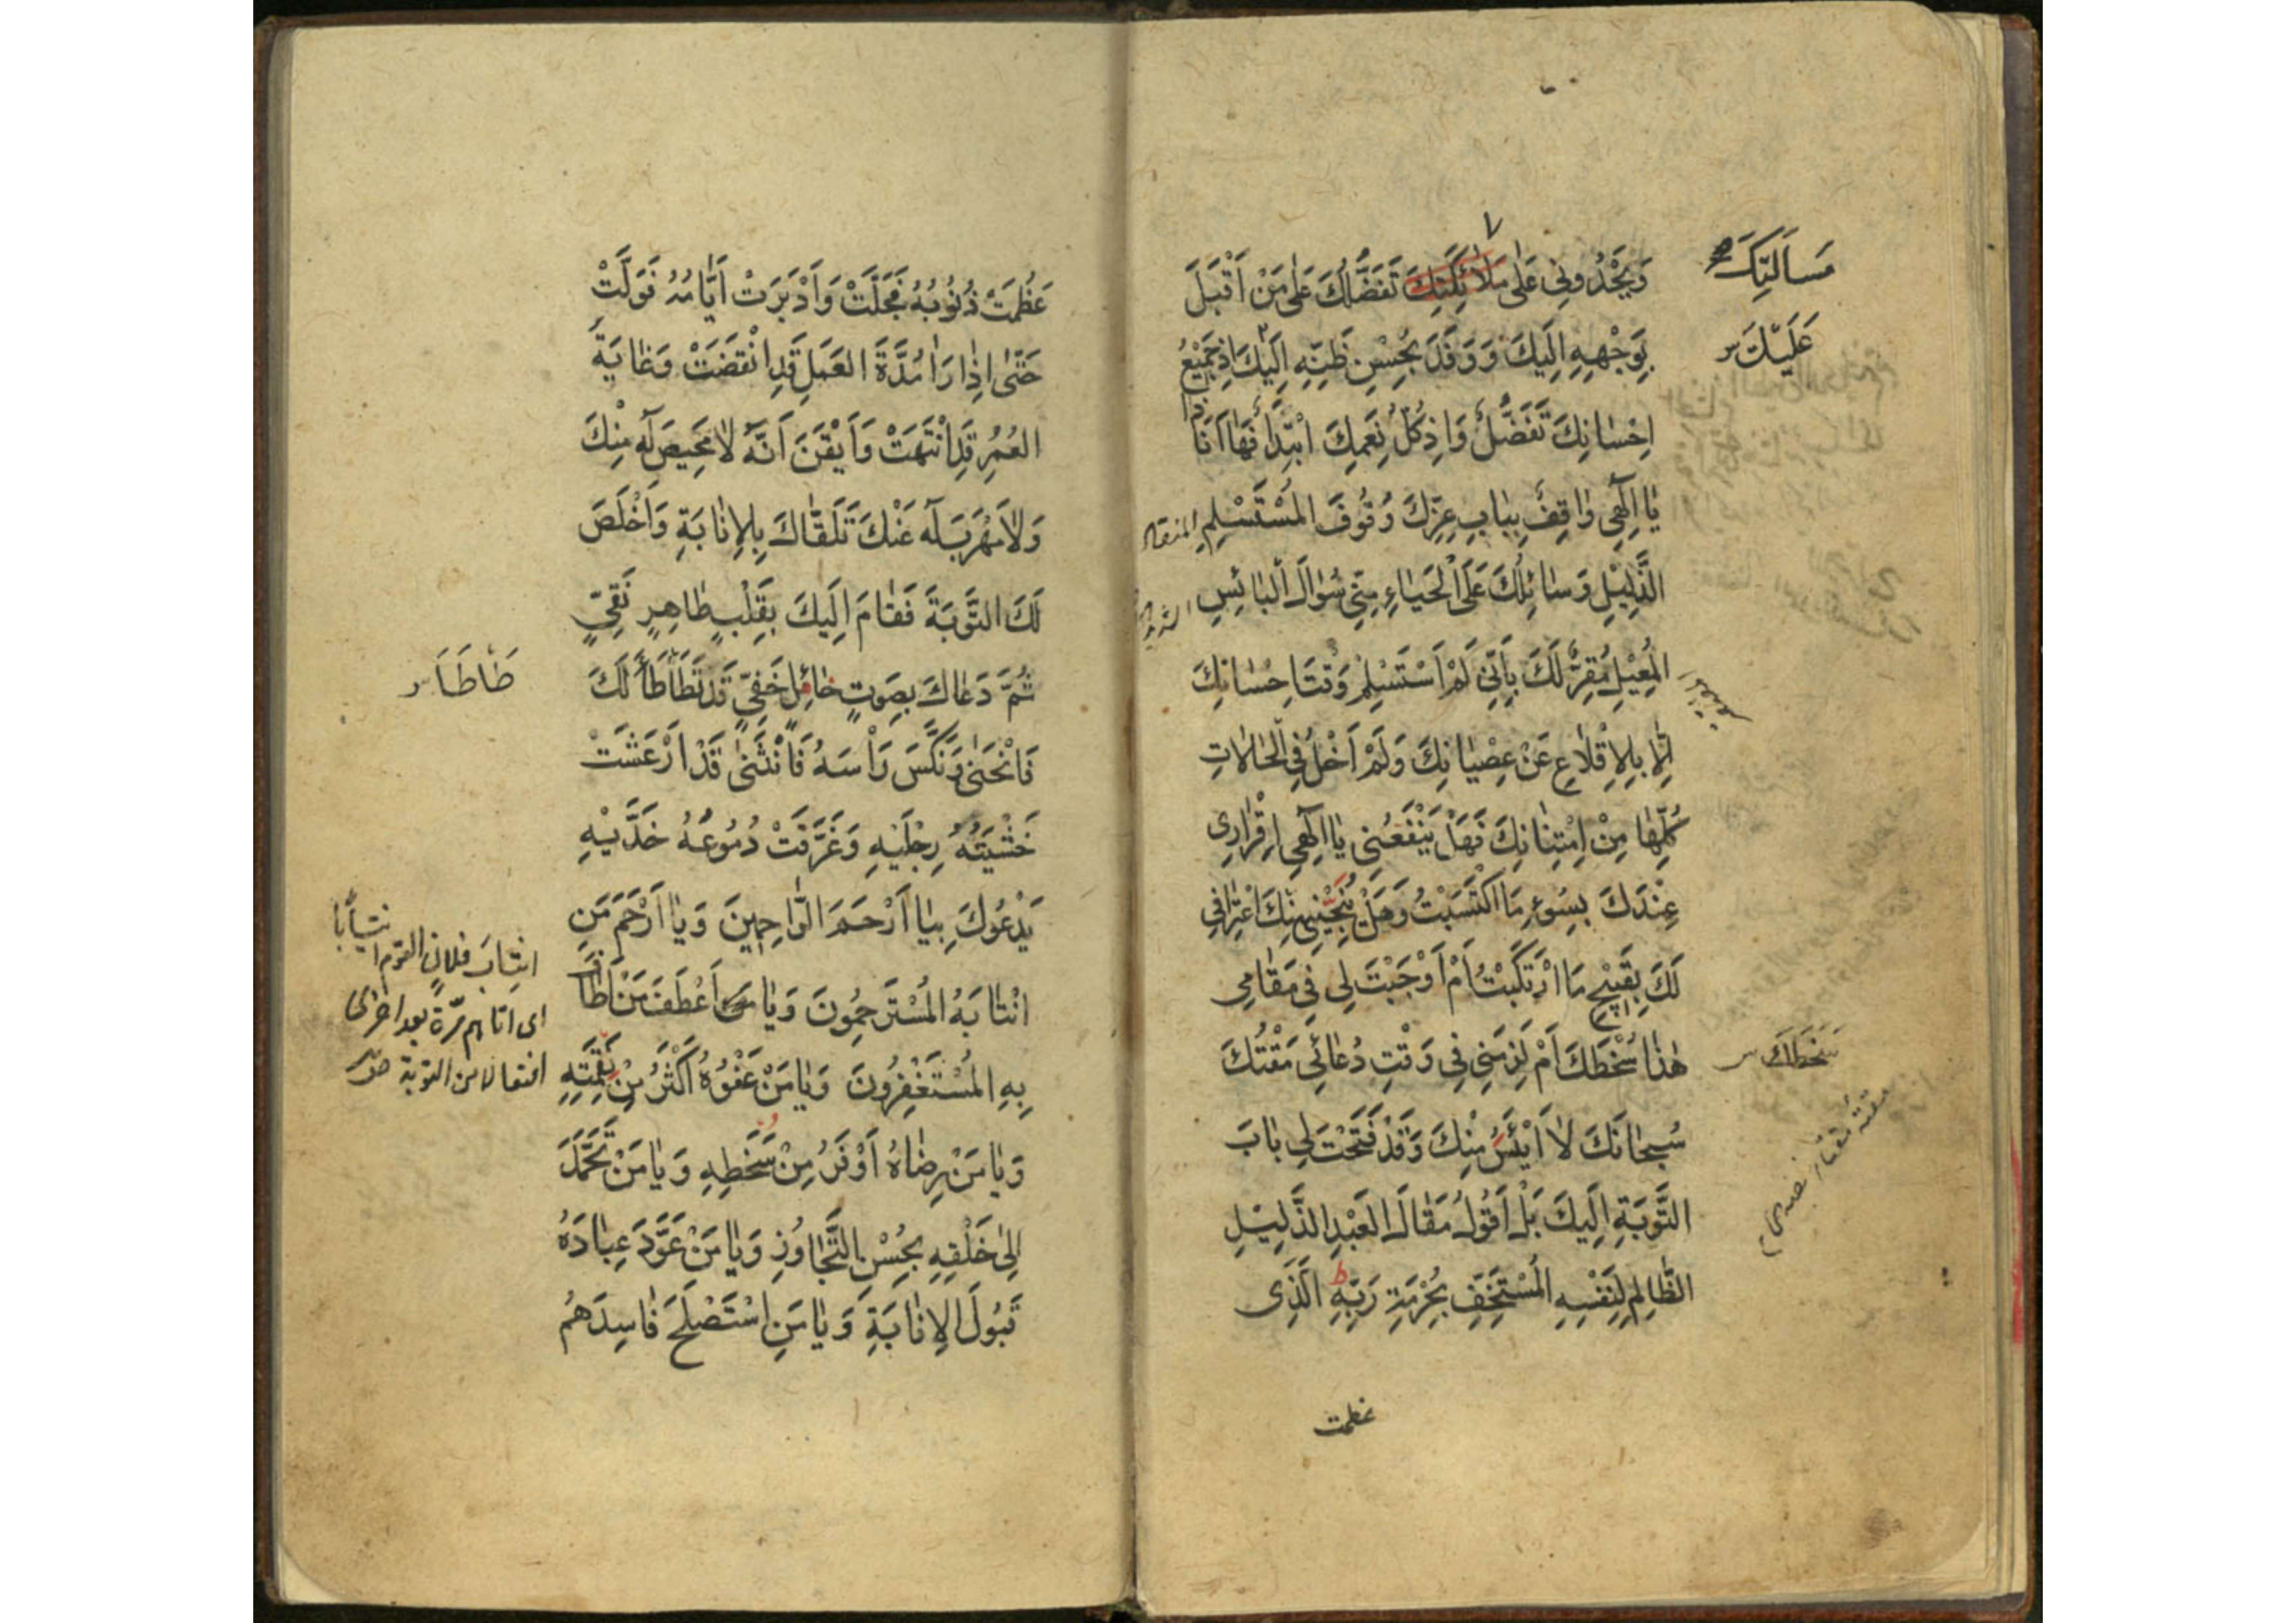 وَيَحْدُونِي عَلٰى مَلٰائِكَتِكَ تَفَضُّلُكَ عَلٰى مَنْ أَقْبَلَ
بِوَجْهِهِ اِلَيكَ وَوَفَدَ بِحُسْنِ ظَنِّهِ اِلَيْكَ اِذْ جَمِيْعُ
اِحْسٰانِكَ تَفَضُّلٌ وَاِذْ كُلُّ نِعَمِكَ ابْتِدَاءٌ فَهٰا اَنَا ذا
يٰا اِلٰهِي وٰاقِفٌ بِبٰابِ عِزِّكَ وُقُوفَ المُسْتَسْلِمِ
الذَّلِيْلِ وَسٰائِلُكَ عَلَى الْحَيٰاءِ مِنِّي سُؤٰالَ الْبٰائِسِ
المُعِيْلِ مُقِرٌّ لَكَ بِاَنِّي لَمْ اَسْتَسْلِمْ وَقْتَ اِحْسٰانِكَ
اِلّٰا بِالْاِقْلٰاعِ عَنْ عِصْيٰانِكَ وَلَمْ اَخْلُ فِي الْحٰالٰاتِ
كُلِّهٰا مِنْ اِمْتِنٰانِكَ فَهَلْ يَنْفَعُنِي يٰا اِلٰهِي اِقْرٰارِي
عِنْدَكَ بِسُوءِ مَا اكْتَسَبْتُ وَهَلْ يُنَجِّيْنِي مِنْكَ اعْتِرٰافِي
لَكَ بِقَبِيْحِ مَا ارْتَكَبْتُ اَمْ اَوْجَبْتَ لِي فِي مَقٰامِي
هٰذٰا سُخْطَكَ اَمْ لَزِمَنِي فِي وَقْتِ دُعٰائِي مَقْتُكَ
سُبْحٰانَكَ لٰا اَيْئَسُ مِنْكَ وَقَدْ فَتَحْتَ لِي بٰابَ
التَّوْبَةِ اِلَيكَ بَلْ اَقُولُ مَقٰالَ العَبْدِ الذَّلِيْلِ
الظّٰالِمِ لِنَفْسِهِ المُسْتَخِفِّ بِحُرْمَةِ رَبِّهِ الَّذِى
عظمت
مَسأَلَتِكَ
عَلَيْكَ
سَخَطَكَ
عَظُمَتْ ذُنُوبُهُ فَجَلَّتْ وَاَدْبَرَتْ اَيّٰامُهُ فَوَلَّتْ
حَتّٰى اِذٰا رَاٰ مُدَّةَ العَمَلِ قَدِ انْقَضَتْ وَغٰايَةَ
العُمُرِ قَدِ انْتَهَتْ وَاَيْقَنَ اَنَّهُ لٰا مَحِيصَ لَهُ مِنْكَ
وَلٰا مَهْرَبَ لَهُ عَنْكَ تَلَقّٰاكَ بِالاِنٰابَةِ وَاَخْلَصَ
لَكَ التَّوْبَةَ فَقٰامَ اِلَيكَ بِقَلْبٍ طٰاهِرٍ نَقِيٍّ
ثُمَّ دَعٰاكَ بِصَوتٍ حٰائِلٍ خَفِيٍّ قَدْ تَطَأْطَأَ لَكَ
فَانْحَنٰى وَنَكَّسَ رَأْسَهُ فَانْثَنٰى قَدْ اَرْعَشَتْ
خَشْيَتُهُ رِجْلَيْهِ وَغَرَّقَتْ دُمُوعُهُ خَدَّيْهِ
يَدْعُوكَ بِيٰا اَرْحَمَ الرّٰاحِمِينَ وَيٰا اَرْحَمَ مَنِ
انْتٰابَهُ المُسْتَرْحِمُونَ وَيٰا اَعْطَفَ مَنْ اَطٰافَ
بِهِ المُسْتَغْفِرُونَ وَيٰا مَنْ عَفْوُهُ اَكْثَرُ مِنْ نَقِمَتِهِ
وَيٰا مَنْ رِضٰاهُ اَوْفَرُ مِنْ سَخَطِهِ وَيٰا مَنْ تَحَمَّدَ
اِلىٰ خَلْقِهِ بِحُسْنِ التَّجٰاوُزِ وَيٰا مَنْ عَوَّدَ عِبٰادَهُ
قَبُولَ الاِنٰابَةِ وَيٰا مَنِ اسْتَصْلَحَ فٰاسِدَهُمْ
طَأْطَأَ
انتابَ فلان القوم انتيابًا
اى اتاهم مرّة بعد اخرى
افتعال من النوبة